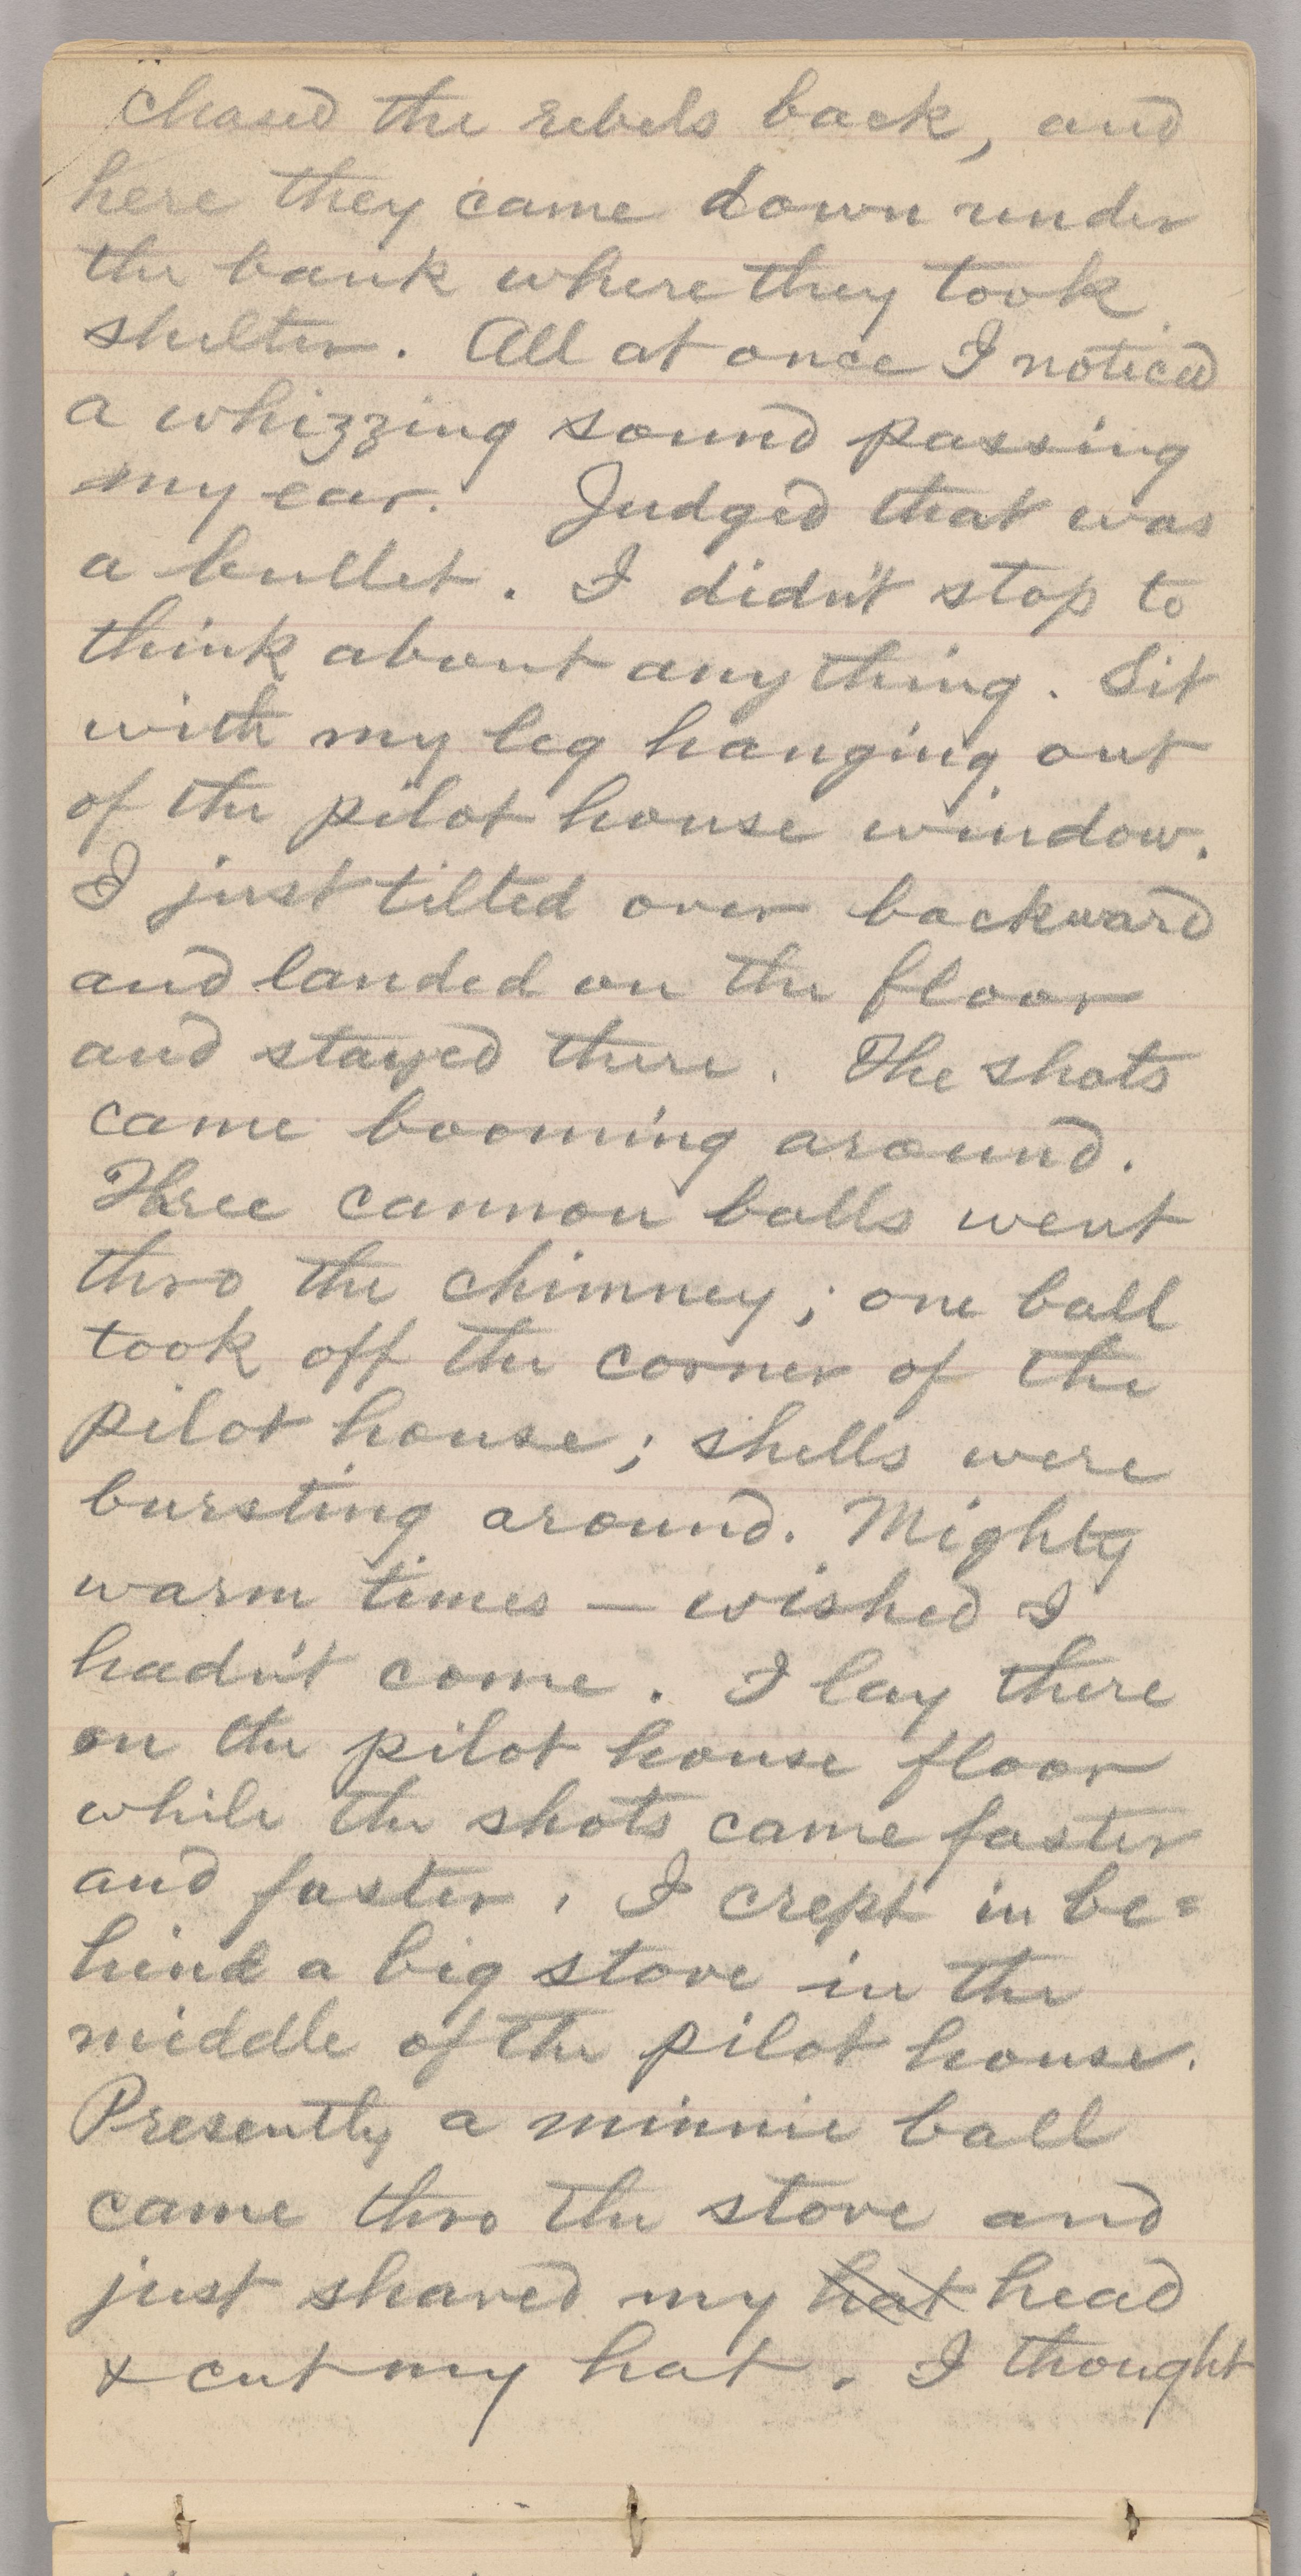 chased the rebels back, and
here they came down under
the bank where they took
shelter. All at once I noticed
a whizzing sound passing
my ear. Judged that was
a bullet. I didn't stop to
think about anything. Sit
with my leg hanging out
of the pilot house window.
I just tilted over backward
and landed on the floor
and stayed there. The shots
came booming around.
Three cannon balls went
thro the chimney; one ball
took off the corner of the
pilot house; shells were
bursting around. Mighty
warm times — wished I
hadn't come. I lay there
on the pilot house floor
while the shots came faster
and faster. I crept in be=
hind a big stove in the
middle of the pilot house.
Presently a minnie ball
came thro the stove and
just shaved my hat head
& cut my hat. I thought